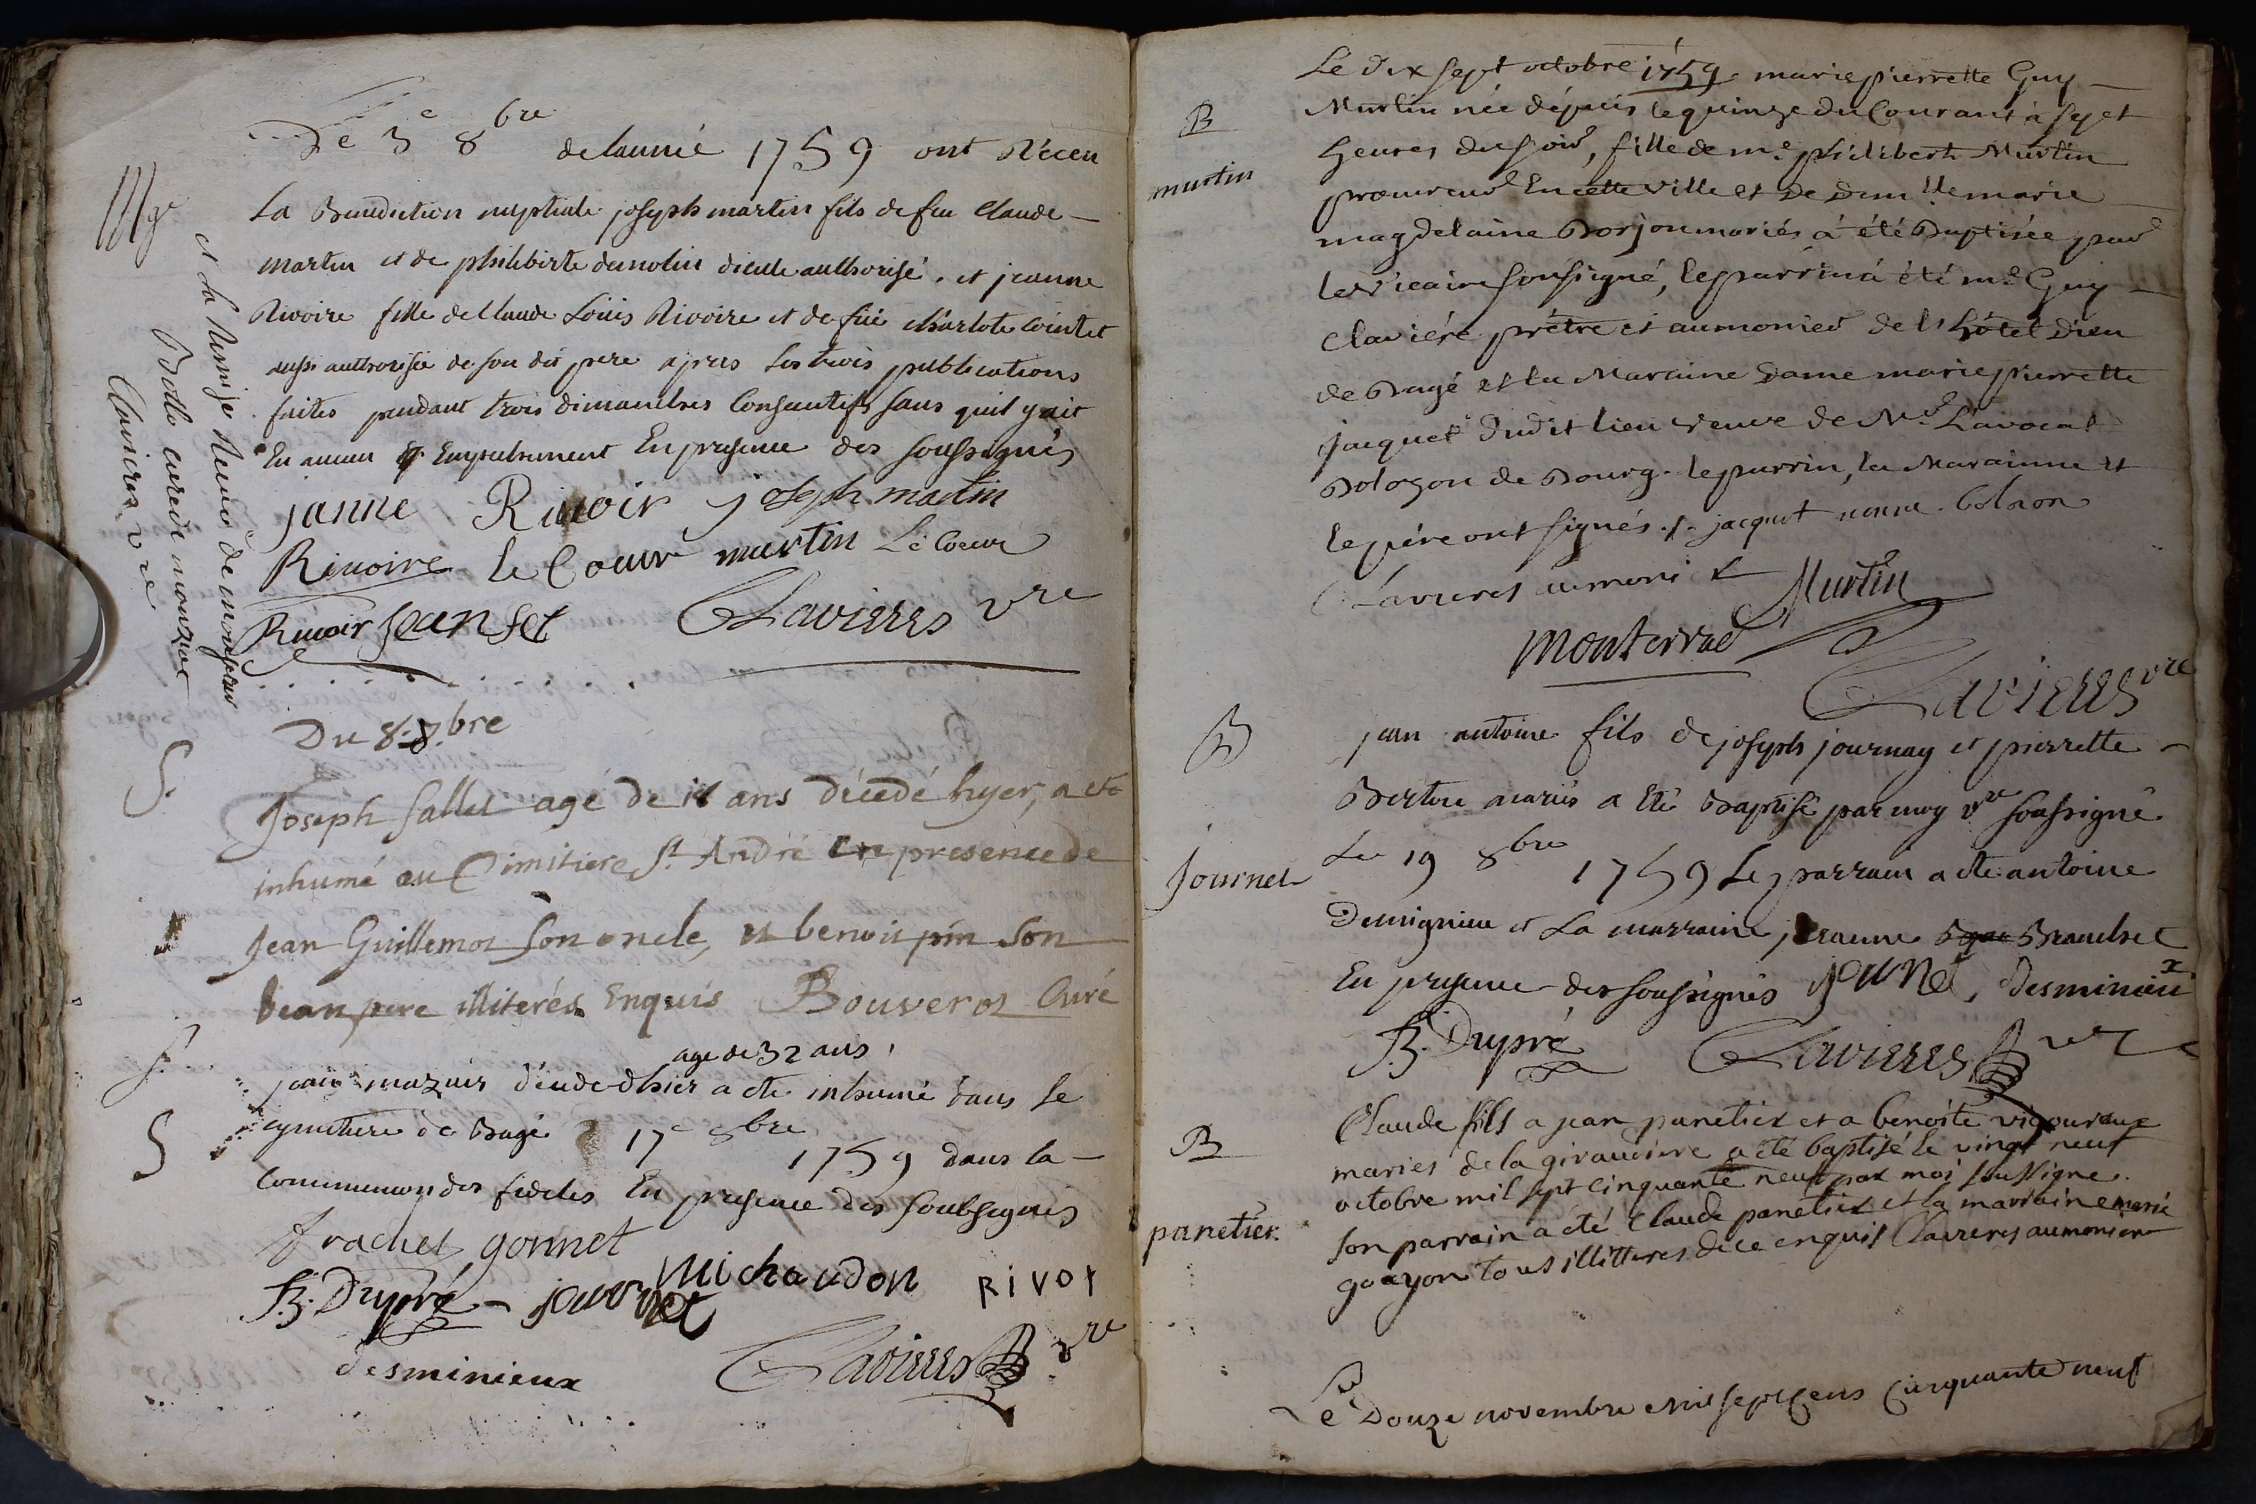 De 3e 8bre de lannié 1759 ont Réceu
Mge
La Benediction nuptiale joseph martin fils de feu Claude
martin et de philiberte dumolin dicelle authorisé. et jeanne
Rivoire fille de Claude Loüis Rivoire et de füe charlote Cointet
aussi authorisée de son dit pere apres les trois publications
faites pendant trois dimanches Consecutifs sans quil y ait
Eu aucun Empechement En presence des soussignés
janne Rivoir joseph martin
Rivoire le Coeur martin Le Coeur
Rivoir jean fet Clavieres vre
et la Remise
Botte curé de
Clavieres vre
Du 8. 8.bre
S.
Joseph fallet agé de ans décedé hyer, a ete
inhumé au Cimitiere St André en presence de
Jean Guillemot son oncle, et benoit pin son
beau pere illiterés Enquis Bouverot Curé
S.
age de 32 ans
jean mazuir décedé dhier a ete inhumé dans le
S
cymetiere de Bagé 17e 8bre 1759 dans la
Communion des fideles En presence des soubsignés
frachet gonnet
B. Dupré journet Michaudon RIVOT
desminieux Clavieres vre
Le dix sept octobre 1759 marie pierrette Guy
B
Martin née dépuis le quinze du Courant à sept
martin
heures du soir, fille de me philibert Martin
procureur En cette ville et de Demlle marie
magdelaine Borjon mariés à été Baptisée par
le Vicaire soussigné, le parrin à été mre Guy
Claviere prêtre et aumonier de l'hôtel Dieu
de Bagé et la Maraine Dame marie pierrette
jacquet dudit lieu veuve de Mr L'avocat
Bolozon de Bourg. le parrin, la Marainne et
le père ont signés. jacquet
Clavieres aumonier Martin
Monterrad
Clavieres vre
B
jean antoine fils de joseph journay et pierrette
Bertou mariés a Eté Baptisé par moy vre soussigné
Le 19 8bre 1759 Le parrain a ete antoine
Journet
Demignieu et La marraine jeanne Branchet
En presence des soussignés journet, desminieux
B. Dupré Clavieres vre
B
Claude fils a jean panetier et a benoite vigoureuse
maries de la giraudiere a été baptisé le vingt neuf
octobre mil sept cinquante neuf par moi soussigne.
panetier.
son parrain a été Claude panetier et la marraine marie
goayon tous illitteres de ce enquis Clavieres aumonier
Le Douze novembre mil sept cens Cinquante neuf